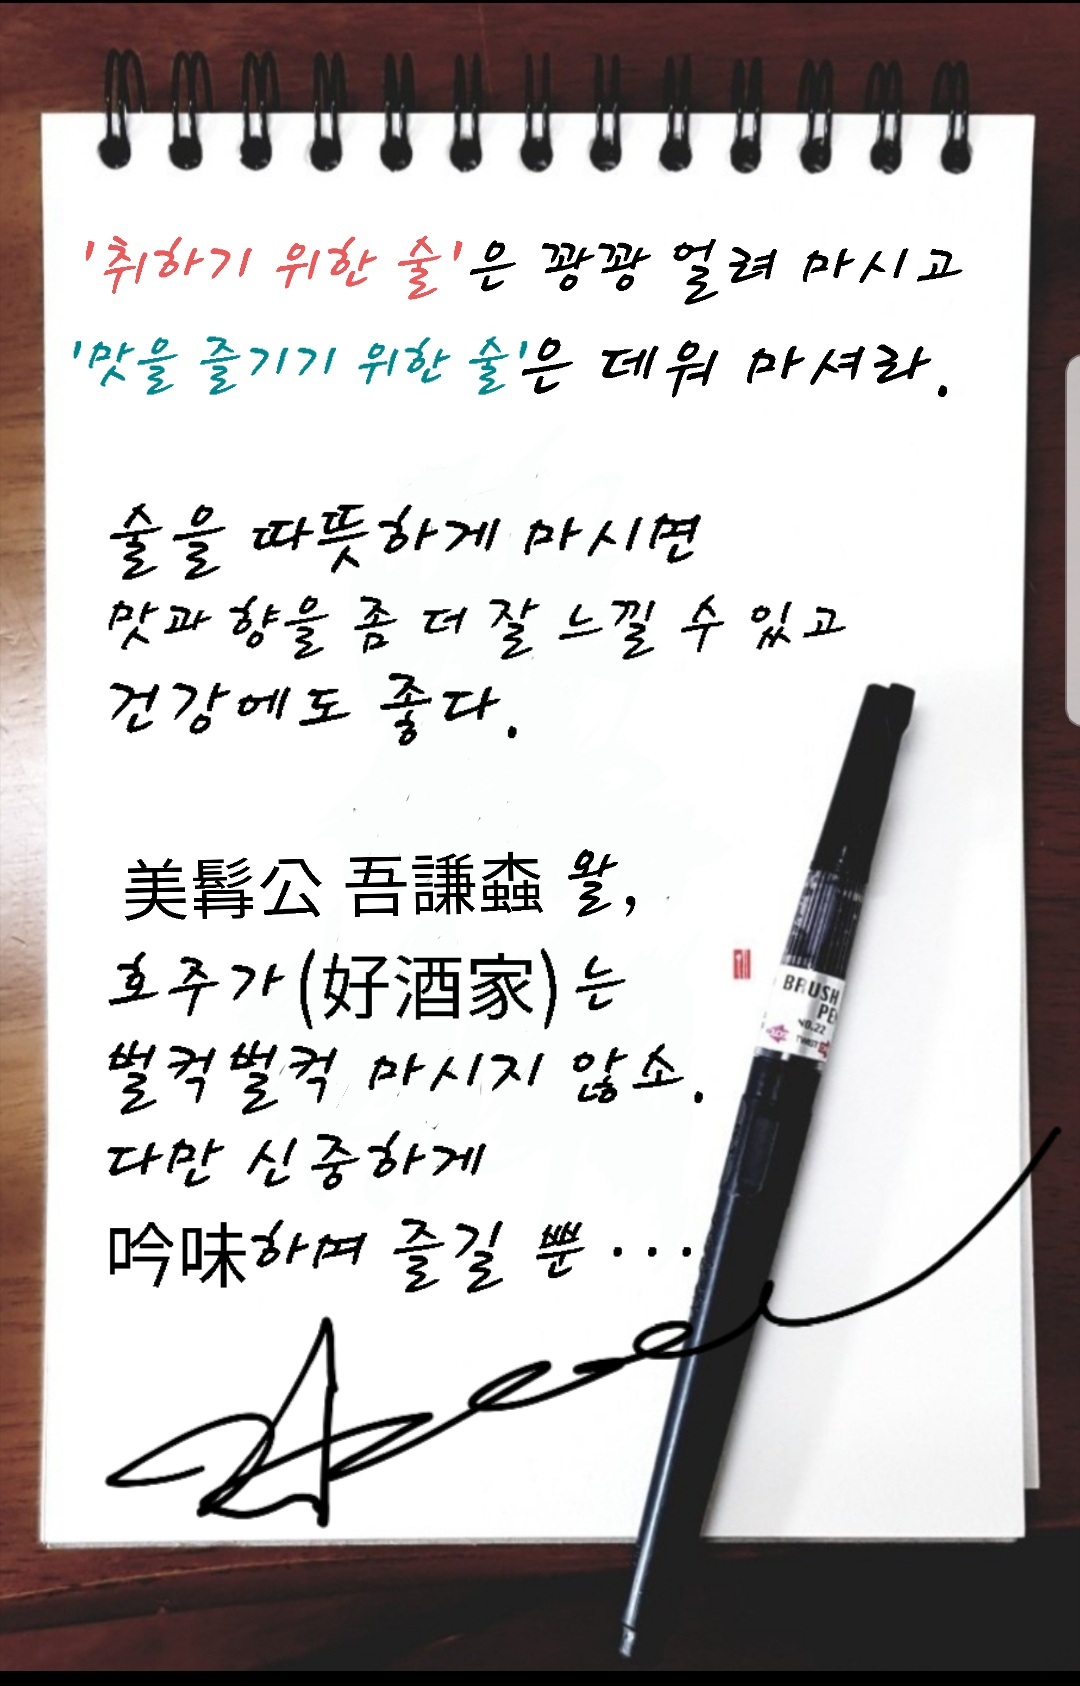 '취하기 위한 술'은 꽝꽝 얼려 마시고
'맛을 즐기기 위한 술'은 데워 마셔라.
술을 따뜻하게 마시면
맛과 향을 좀 더 잘 느낄 수 있고
건강에도 좋다.
美髥公 吾謙螙 왈,
호주가(好酒家)는
벌컥벌컥 마시지 않소.
다만 신중하게
吟味하며 즐길 뿐...
BRUSH
PEN
NO.22
TWIST